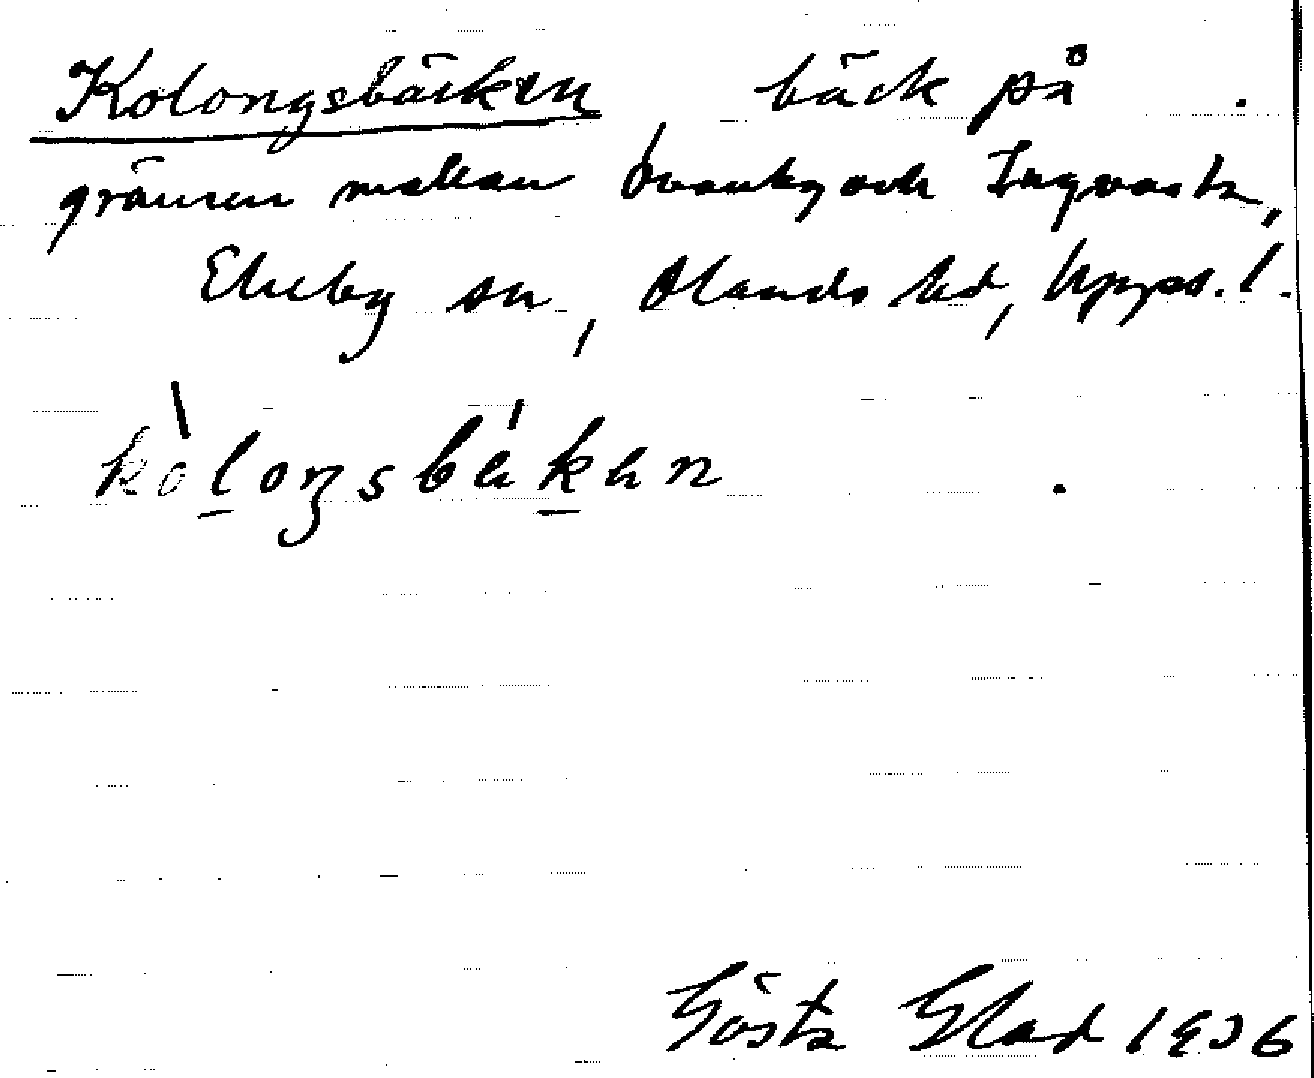 Kolongsbäcken bäck på
gränsen mellan och Ingvasta,
Ekeby sn, Olands hd, Upps. l.
kòloŋsbäkän
Gösta Glad 1936